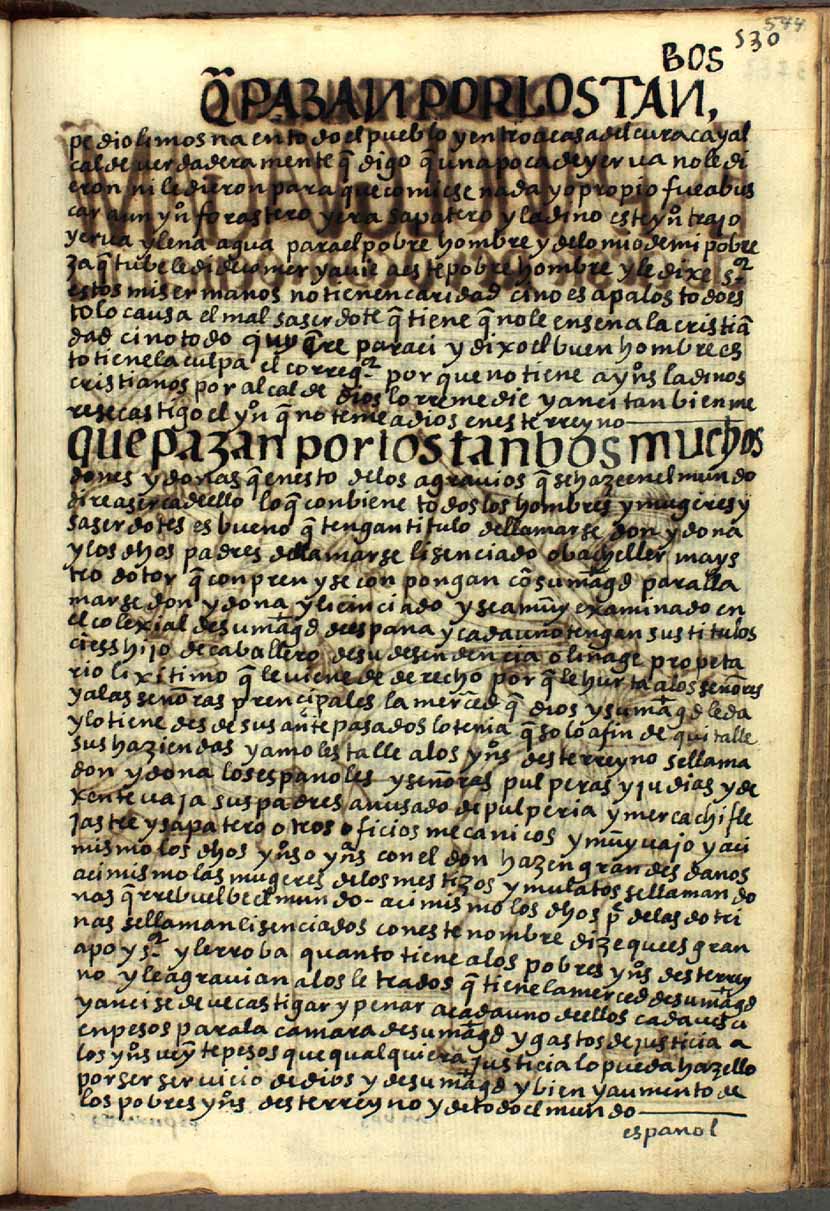 544
530
BOS
Q̃ PAZAN POR LOS TAN,
pedio limosna en todo el pueblo y entro a casa del curaca y al
calde uerdaderamente q̃ digo q̃ una poca de yerua no le di
eron ni le dieron para que comiese nada yo propio fue a bus
car a un yṇ̃ forastero y era sapatero y ladino este yṇ̃ trajo
yerua y lena agua para el pobre hombre y de lo mio de mi pobre
za q̃ tube le di de comer y auie a este pobre hombre y le dixe sr
estos mis ermanos no tienen caridad cino es a palos todo es
to lo causa el mal saserdote q̃ tiene q̃ no le ensena la cristiã
dad cino todo quiq̃re para ci y dixo el buen hombre es
to tiene la culpa el correqor por que no tiene a yṇ̃s ladinos
cristianos por alcalde dios lo rremedie y anci tanbien me
rese castigo el yṇ̃ q̃ no teme a dios en este rreyno
que pazan por los tanbos muchos
dones y donas q̃ en esto de los agrauios q̃ se haze en el mundo
dire aserca dello lo q̃ conbiene todos los hombres y mugeres y
saserdotes es bueno q̃ tengan titulo de llamarse don y dona
y los dhos padres de llamarse lisenciado o bacheller mays
tro dotor q̃ conpren y se conpongan cõ su mag̃d para lla
marse don y dona y licinciado y sea muy examinado en
el colexial de su mag̃d de espana y cada uno tengan sus titulos
ciess hijo de caballero de su desendencia o linage propeta
rio lixitimo q̃ le uiene de derecho por q̃ le hurta a los señoras
y a las señoras prencipales la merced q̃ dios y su mag̃d le da
y lo tiene desde sus antepasados lo tenia q̃ solo a fin de quitalle
sus haziendas y a molestalle a los yṇ̃s deste rreyno se llama
don y dona los espanoles y señoras pulperas y judias y de
xente uaja sus padres an usado de pulperia y mercachifle
jastre y sapatero otros oficios mecanicos y muy uajo y aci
mismo los dhos yṇ̃s o yṇ̃as con el don hazen grandes danos
acimismo las mugeres de los mestizos y mulatos se llaman do
nas q̃ rrebuelbe el mundo - acimismo los dhos p̃ de las dotri
nas se llaman lisenciados con este nombre dize que es gran
apo y sr y le rroba quanto tiene a los pobres yṇ̃s deste rrey
no y le agrauian a los letrados q̃ tiene la merced de su mag̃d
y anci se deue castigar y penar a cada uno dellos cada ues ci
en pesos para la camara de su mag̃d y gastos de justicia a
los yṇ̃s ueynte pesos que qualquiera justicia lo pueda hazello
por ser seruicio de dios y de su mag̃d y bien y aumento de
los pobres yṇ̃s deste rreyno y de todo el mundo
espanol